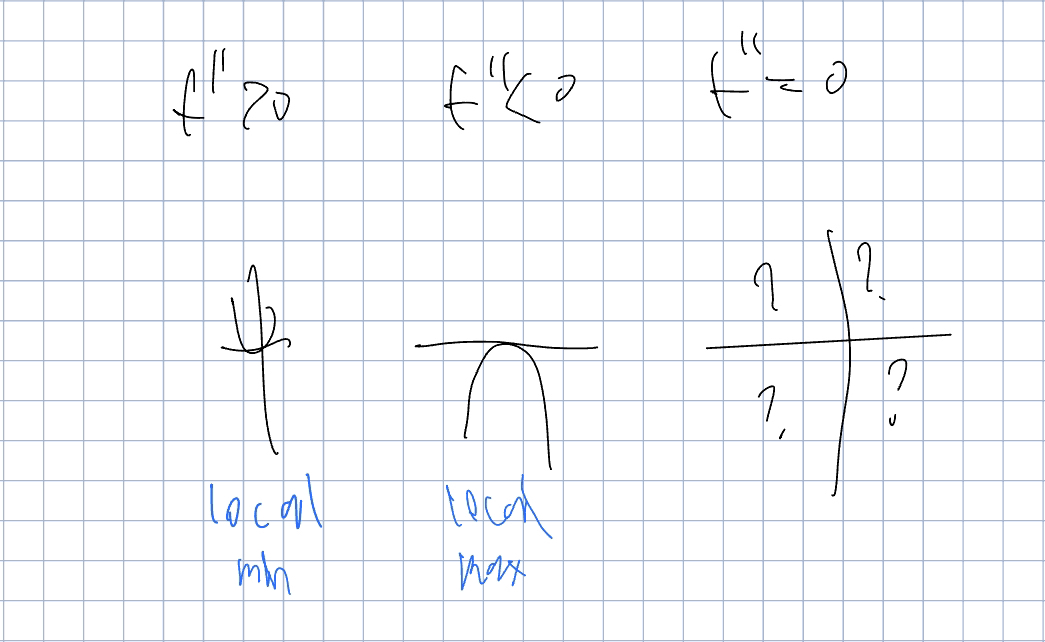 f'' > 0
f'' < 0
f'' = 0
?
?.
?.
?
local
min
local
max